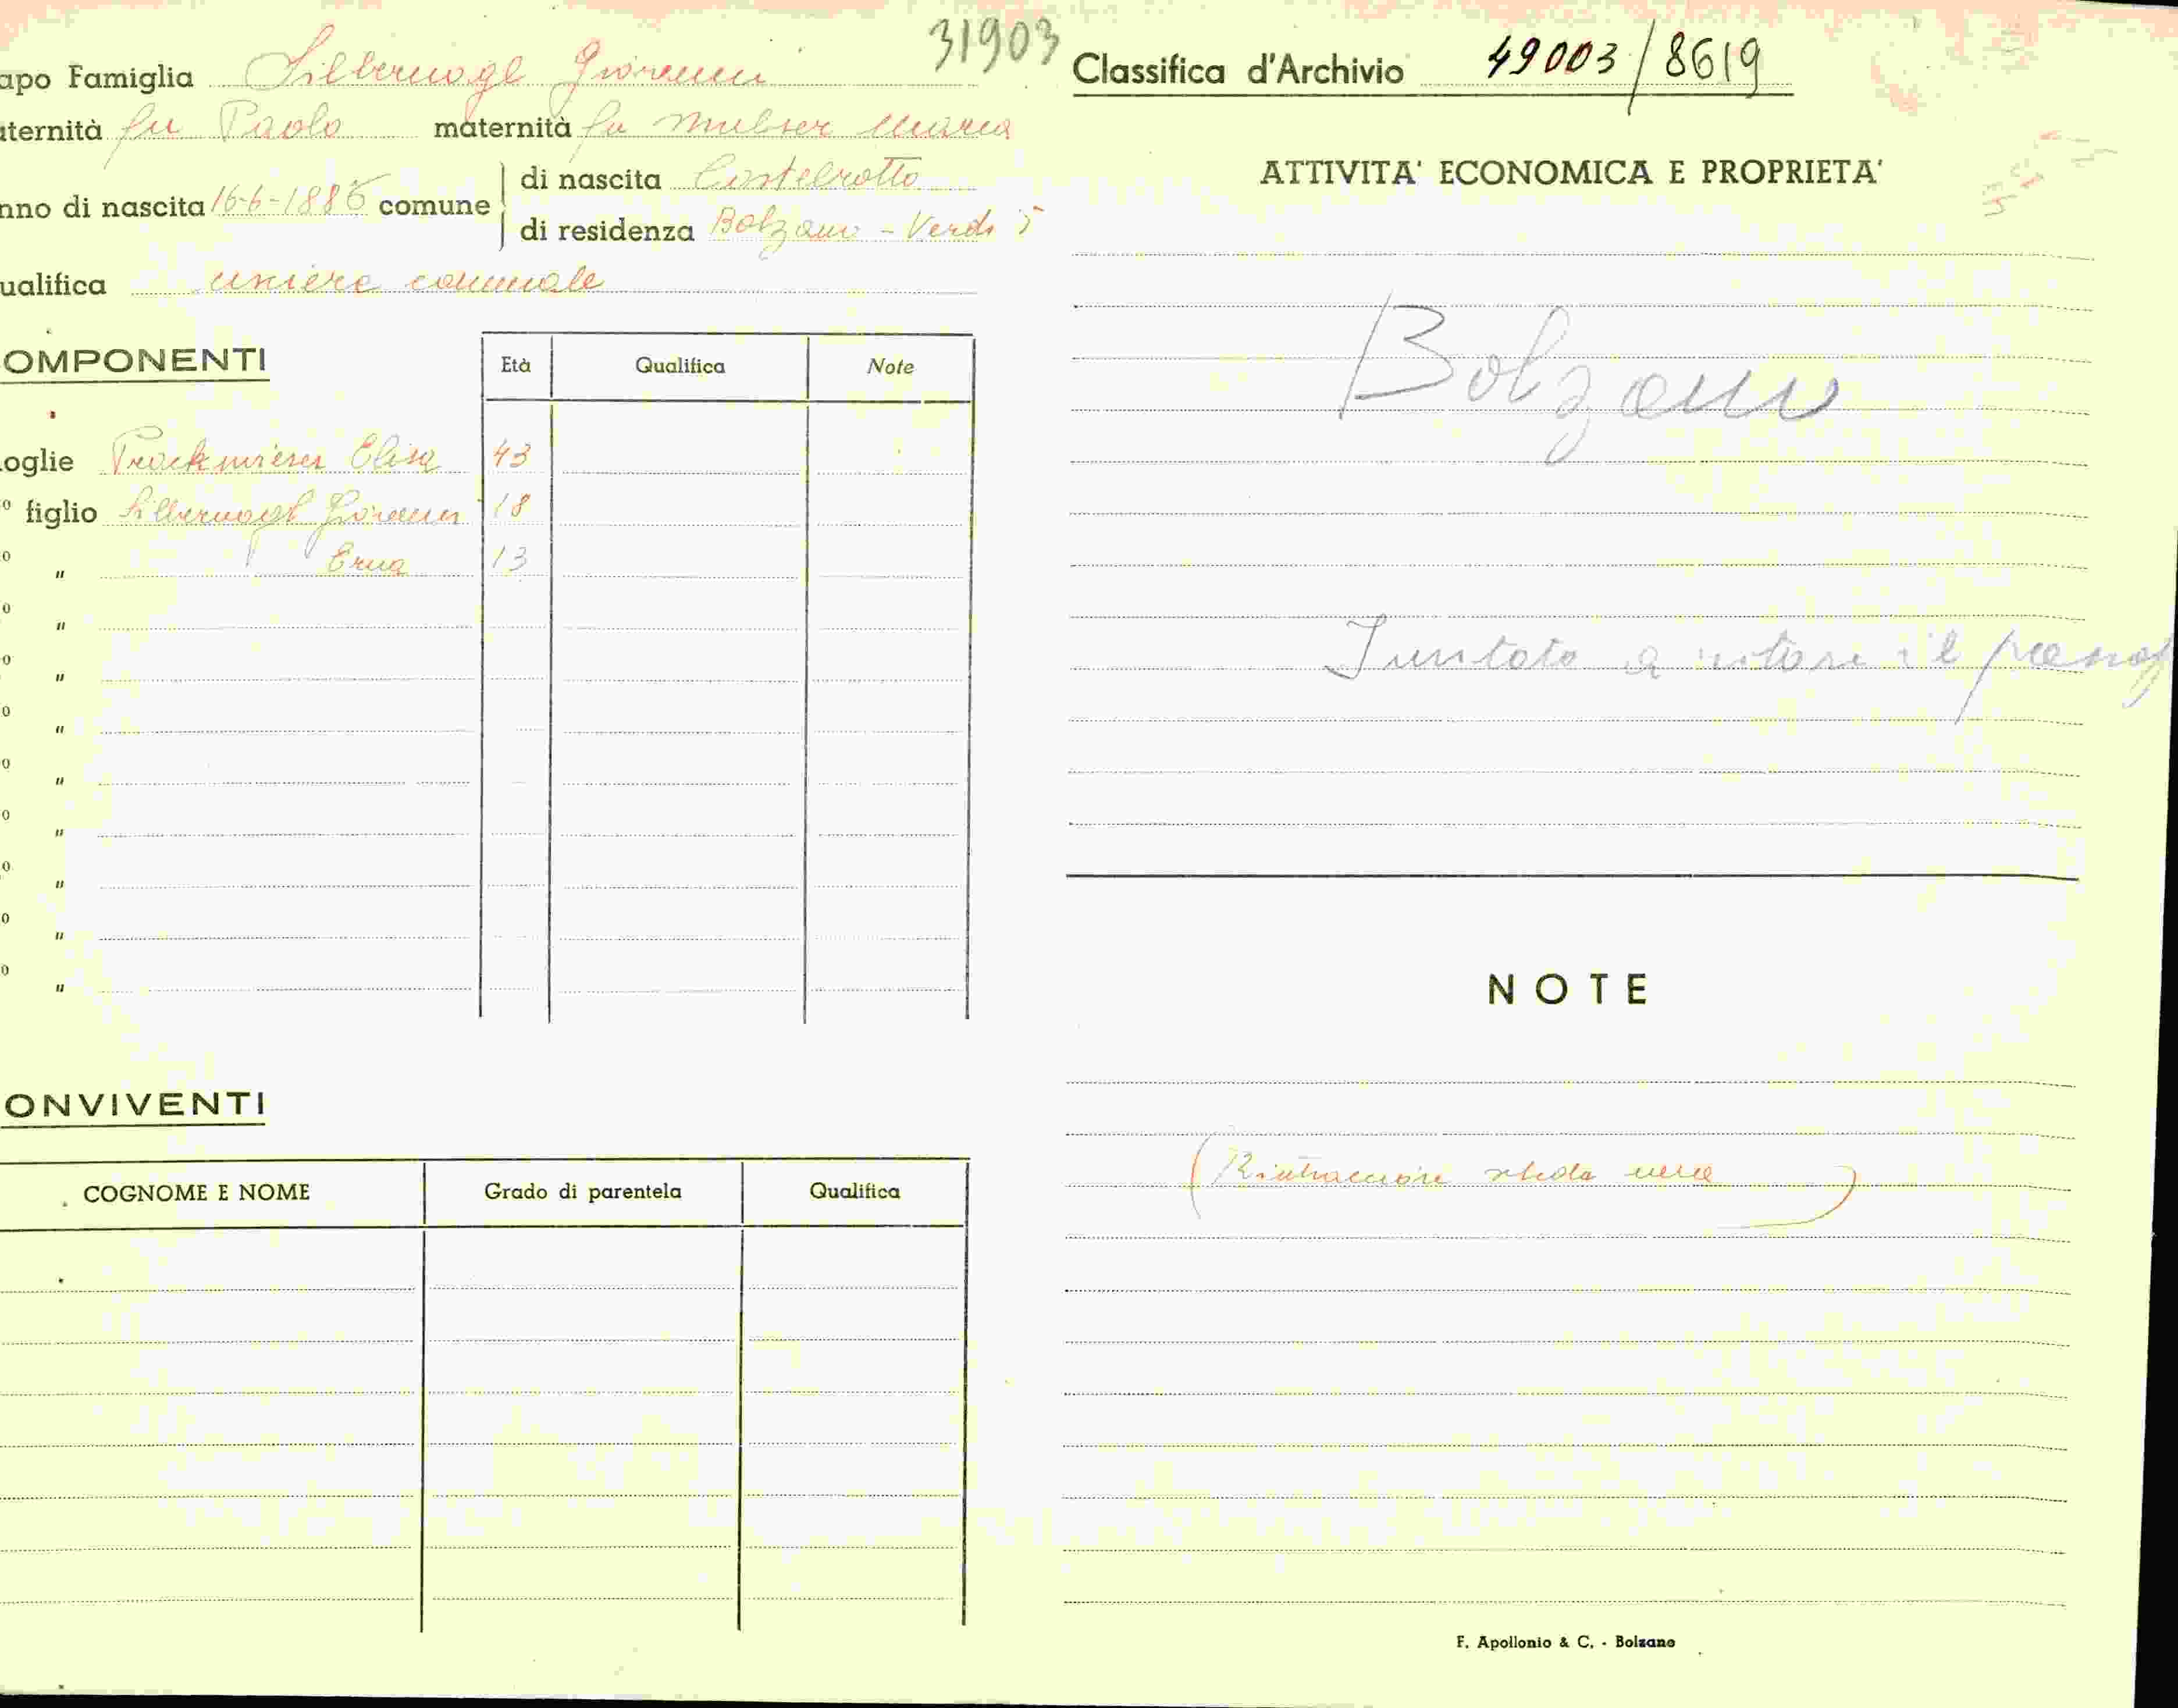 31903
apo Famiglia Silbernagl Giovanni
aternità fu Paolo maternità fu Mulser Maria
nno di nascita 16-6-1885 comune
di nascita Castelrotto
di residenza Bolzano - Verdi 5
ualifica usciere comunale
OMPONENTI
Età Qualifica Note
oglie Elisa 43
° figlio Silbernagl Giovanni 18
° " Erna 13
° "
° "
° "
° "
° "
° "
° "
° "
ONVIVENTI
COGNOME E NOME Grado di parentela Qualifica
Classifica d'Archivio 49003/8619
ATTIVITA' ECONOMICA E PROPRIETA'
Bolzano
a il
NOTE
(Rintracciare scheda vera)
F. Apollonio & C. - Bolzano